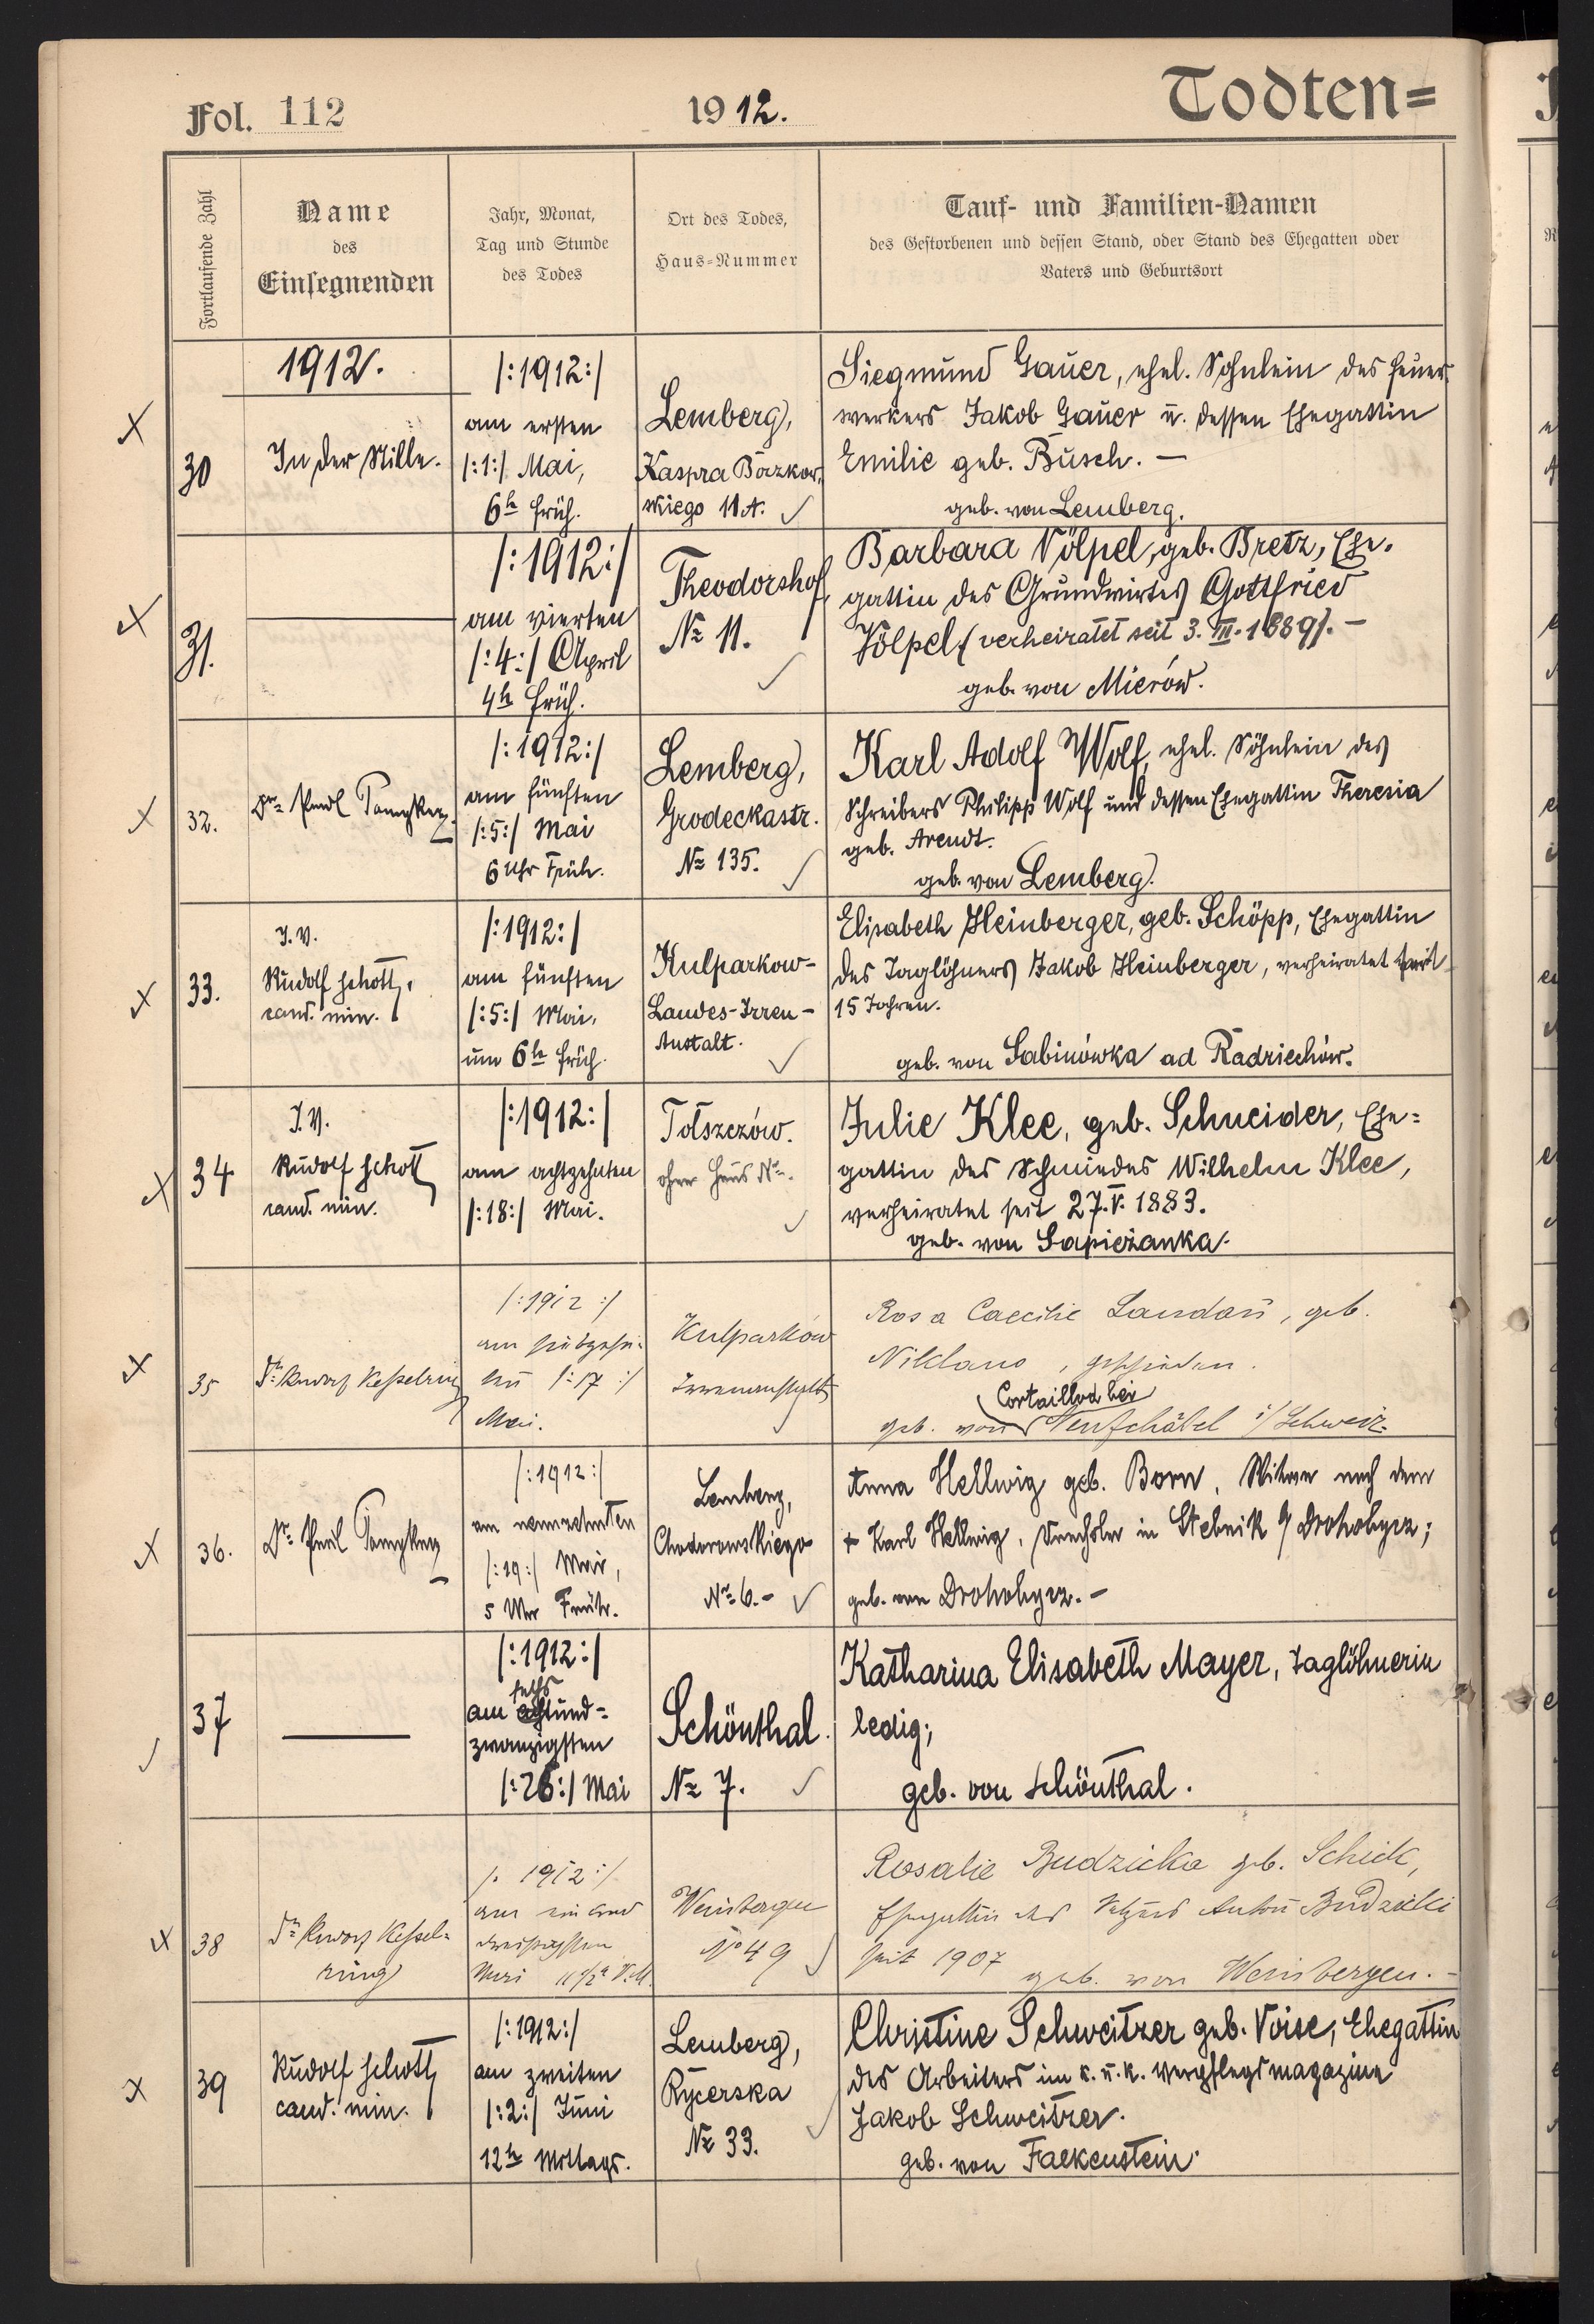 Fol. 112
1912.
Todten=
Fortlaufende Zahl
Name
des
Einsegnenden
Jahr, Monat,
Tag und Stunde
des Todes
Ort des Todes,
Haus-Nummer
Tauf- und Familien-Namen
des Gestorbenen und dessen Stand, oder Stand des Ehegatten oder
Vaters und Geburtsort
1912.
30
In der Stille.
/:1912:/
am ersten
/:1:/ Mai,
6h früh.
Lemberg,
Kaspra
wskiego 11A.
Siegmund Gauer, ehel. Söhnlein des Feuer-
werkers Jakob Gauer u. dessen Ehegattin
Emilie geb. Busch. –
geb. von Lemberg.
31.
/:1912:/
am vierten
/:4:/ April
4h früh.
Theodorshof,
No 11.
Barbara Völpel, geb. Bretz, Ehe-
gattin des Grundwirtes Gottfried
Völpel (verheiratet seit 3. III. 1889). –
geb. von Mierów.
32.
Dr.
/:1912:/
am fünften
/:5:/ Mai
6 Uhr Früh.
Lemberg,
Grodeckastr.
No 135.
Karl Adolf Wolf, ehel. Söhnlein des
Schreibers Philipp Wolf und dessen Ehegattin Theresia
geb. Arendt.
geb. von Lemberg.
33.
I.V.
Rudolf Schott,
cand. min.
/:1912:/
am fünften
/:5:/ Mai,
um 6h früh.
Kulparkow-
Landes-Irren-
Anstalt.
Elisabeth Heinberger, geb. Schöpp, Ehegattin
des Taglöhners Jakob Heinberger, verheiratet seit
15 Jahren.
geb. von Sabinówka ad Radziechów.
34
I.V.
Rudolf Schott
cand. min.
/:1912:/
am achtzehnten
/:18:/ Mai.
Tołszczów.
ohne Haus No.
Julie Klee, geb. Schneider, Ehe=
gattin des Schmiedes Wilhelm Klee,
verheiratet seit 27. V. 1883.
geb. von Sapieżanka.
35
Dr. Rudolf Kesselring
/:1912:/
am siebzehn-
ten /:17:/
Mai.
Kulparków
Irrenanstalt
Rosa Caecilie Landau, geb.
Niklaus, geschieden.
Cortaillod bei
geb. von Neufchâtel i/ Schweiz
36.
Dr.
/:1912:/
am neunzehnten
/:19:/ Mai,
5 Uhr Früh.
Lemberg,
Chodorowskiego
No 6.-
Anna Hellwig geb. Born, Witwe nach dem
+ Karl Hellwig, Drechsler in Stebnik b/ Drohobycz;
geb. von Drohobycz. –
37
/:1912:/
sechs
am achtund=
zwanzigsten
/:26:/ Mai
Schönthal.
No 7.
Katharina Elisabeth Mayer, Taglöhnerin
ledig;
geb. von Schönthal.
38
Dr. Rudolf Kessel=
ring
/: 1912:/
am einund
dreissigsten
Mai 11 1/2h V.M.
Weinbergen
No 49
Rosalie Budzicka geb. Schick,
Ehegattin des Anton Budzicki
seit 1907
geb. von Weinbergen. –
39
Rudolf Schott
cand. min.
/:1912:/
am zweiten
/:2:/ Juni
12h Mittags.
Lemberg,
Rycerska
No 33.
Christine Schweitzer geb. Voise, Ehegattin
des Arbeiters im k. u. k. Verpflegsmagazine
Jakob Schweitzer.
geb. von Falkenstein.